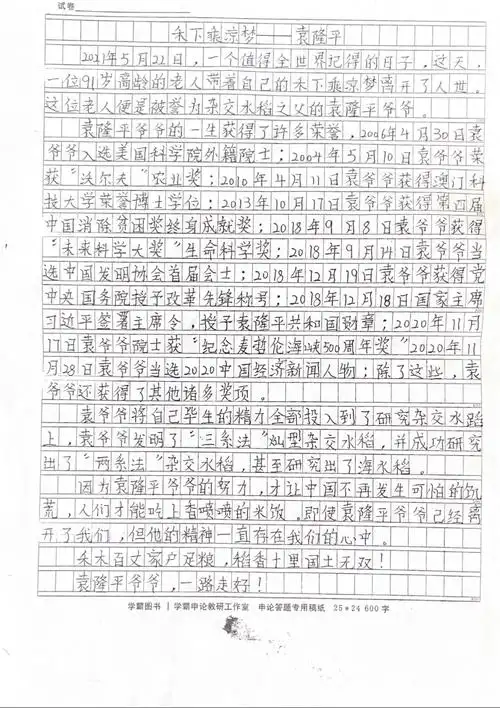 试卷
禾下乘凉梦——袁隆平
2021年5月22日，一个值得全世界记得的日子，这天，
一位91岁高龄的老人带着自己的禾下乘凉梦离开了人世。
这位老人便是被誉为杂交水稻之父的袁隆平爷爷。
袁隆平爷爷的一生获得了许多荣誉，2006年4月30日袁
爷爷入选美国科学院外籍院士；2004年5月10日袁爷爷荣
获“沃尔夫”农业奖；2010年4月11日袁爷爷获得澳门科
技大学荣誉博士学位；2013年10月17日袁爷爷获得第四届
中国消除贫困奖终身成就奖；2018年9月8日袁爷爷获得
“未来科学大奖”生命科学奖；2018年9月14日袁爷爷当
选中国发明协会首届会士；2018年12月19日袁爷爷获得党
中央国务院授予改革先锋称号；2018年12月18日国家主席
习近平签署主席令，授予袁隆平共和国勋章；2020年11月
17日袁爷爷院士获“纪念麦哲伦海峡500周年奖”2020年11
月28日袁爷爷当选2020中国经济新闻人物；除了这些，袁
爷爷还获得了其他诸多奖项。
袁爷爷将自己毕生的精力全部投入到了研究杂交水稻
上，袁爷爷发明了“三系法”籼型杂交水稻，并成功研究
出了“两系法”杂交水稻，甚至研究出了海水稻。
因为袁隆平爷爷的努力，才让中国不再发生可怕的饥
荒，人们才能吃上香喷喷的米饭，即使袁隆平爷爷已经离
开了我们，但他的精神一直存在我们的心中。
禾木百丈家户足粮，稻香十里国土无双！
袁隆平爷爷，一路走好！
学霸图书 | 学霸申论教研工作室 申论答题专用稿纸 25*24 600字